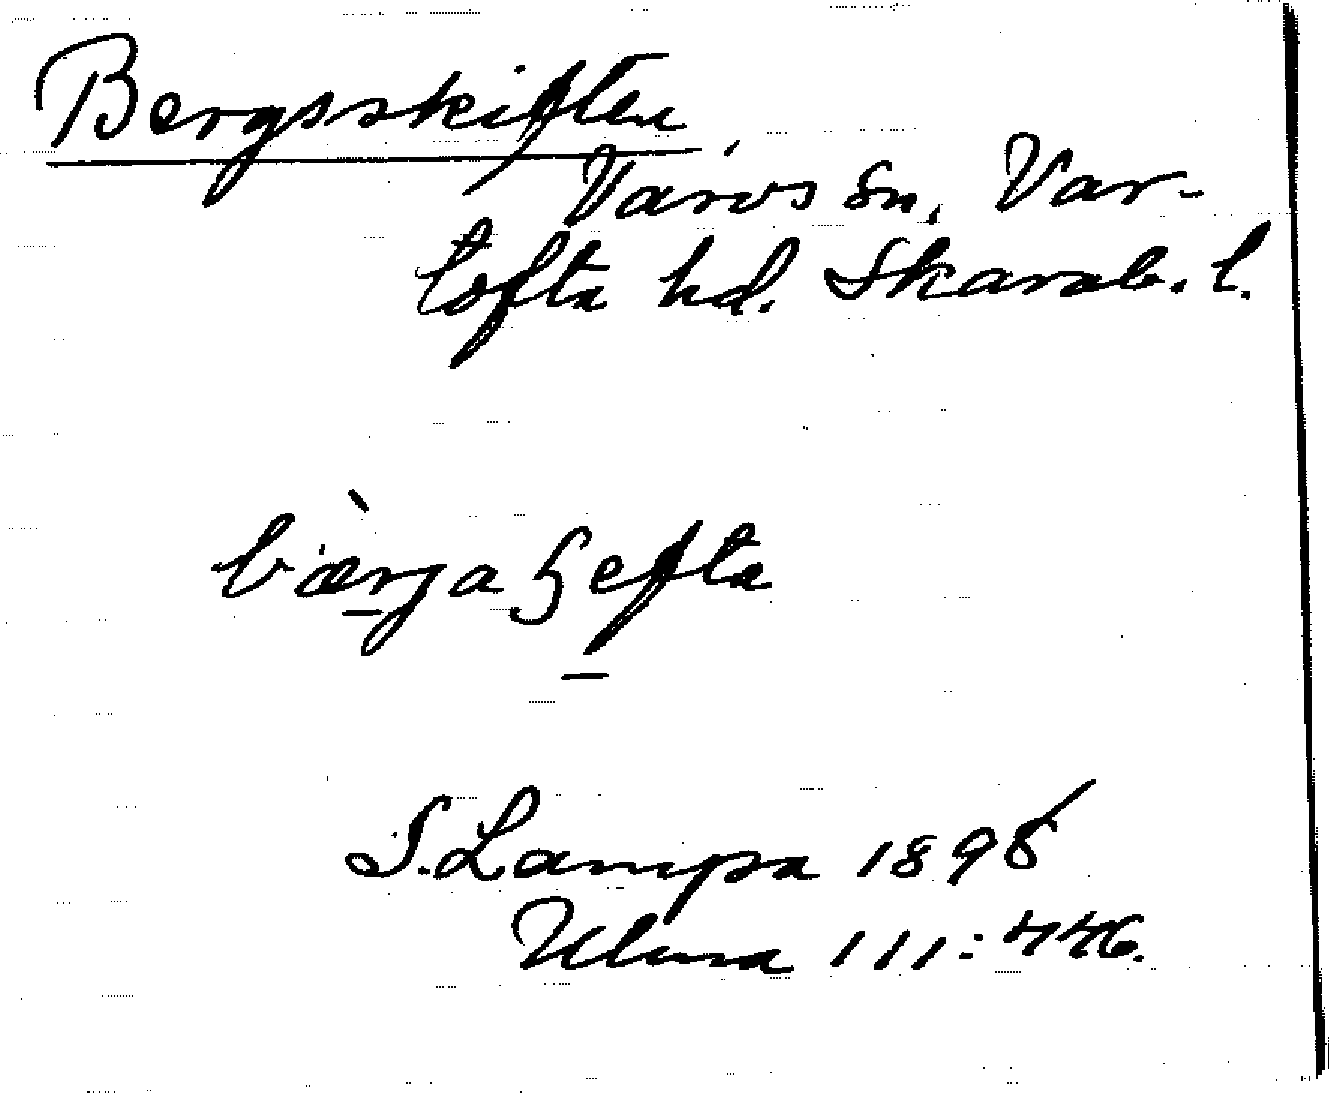 Bergsskiften
Varvs sn, Var-
tofta hd. Skarab. l.
S. Lampa 1896
Uluna 111:446.